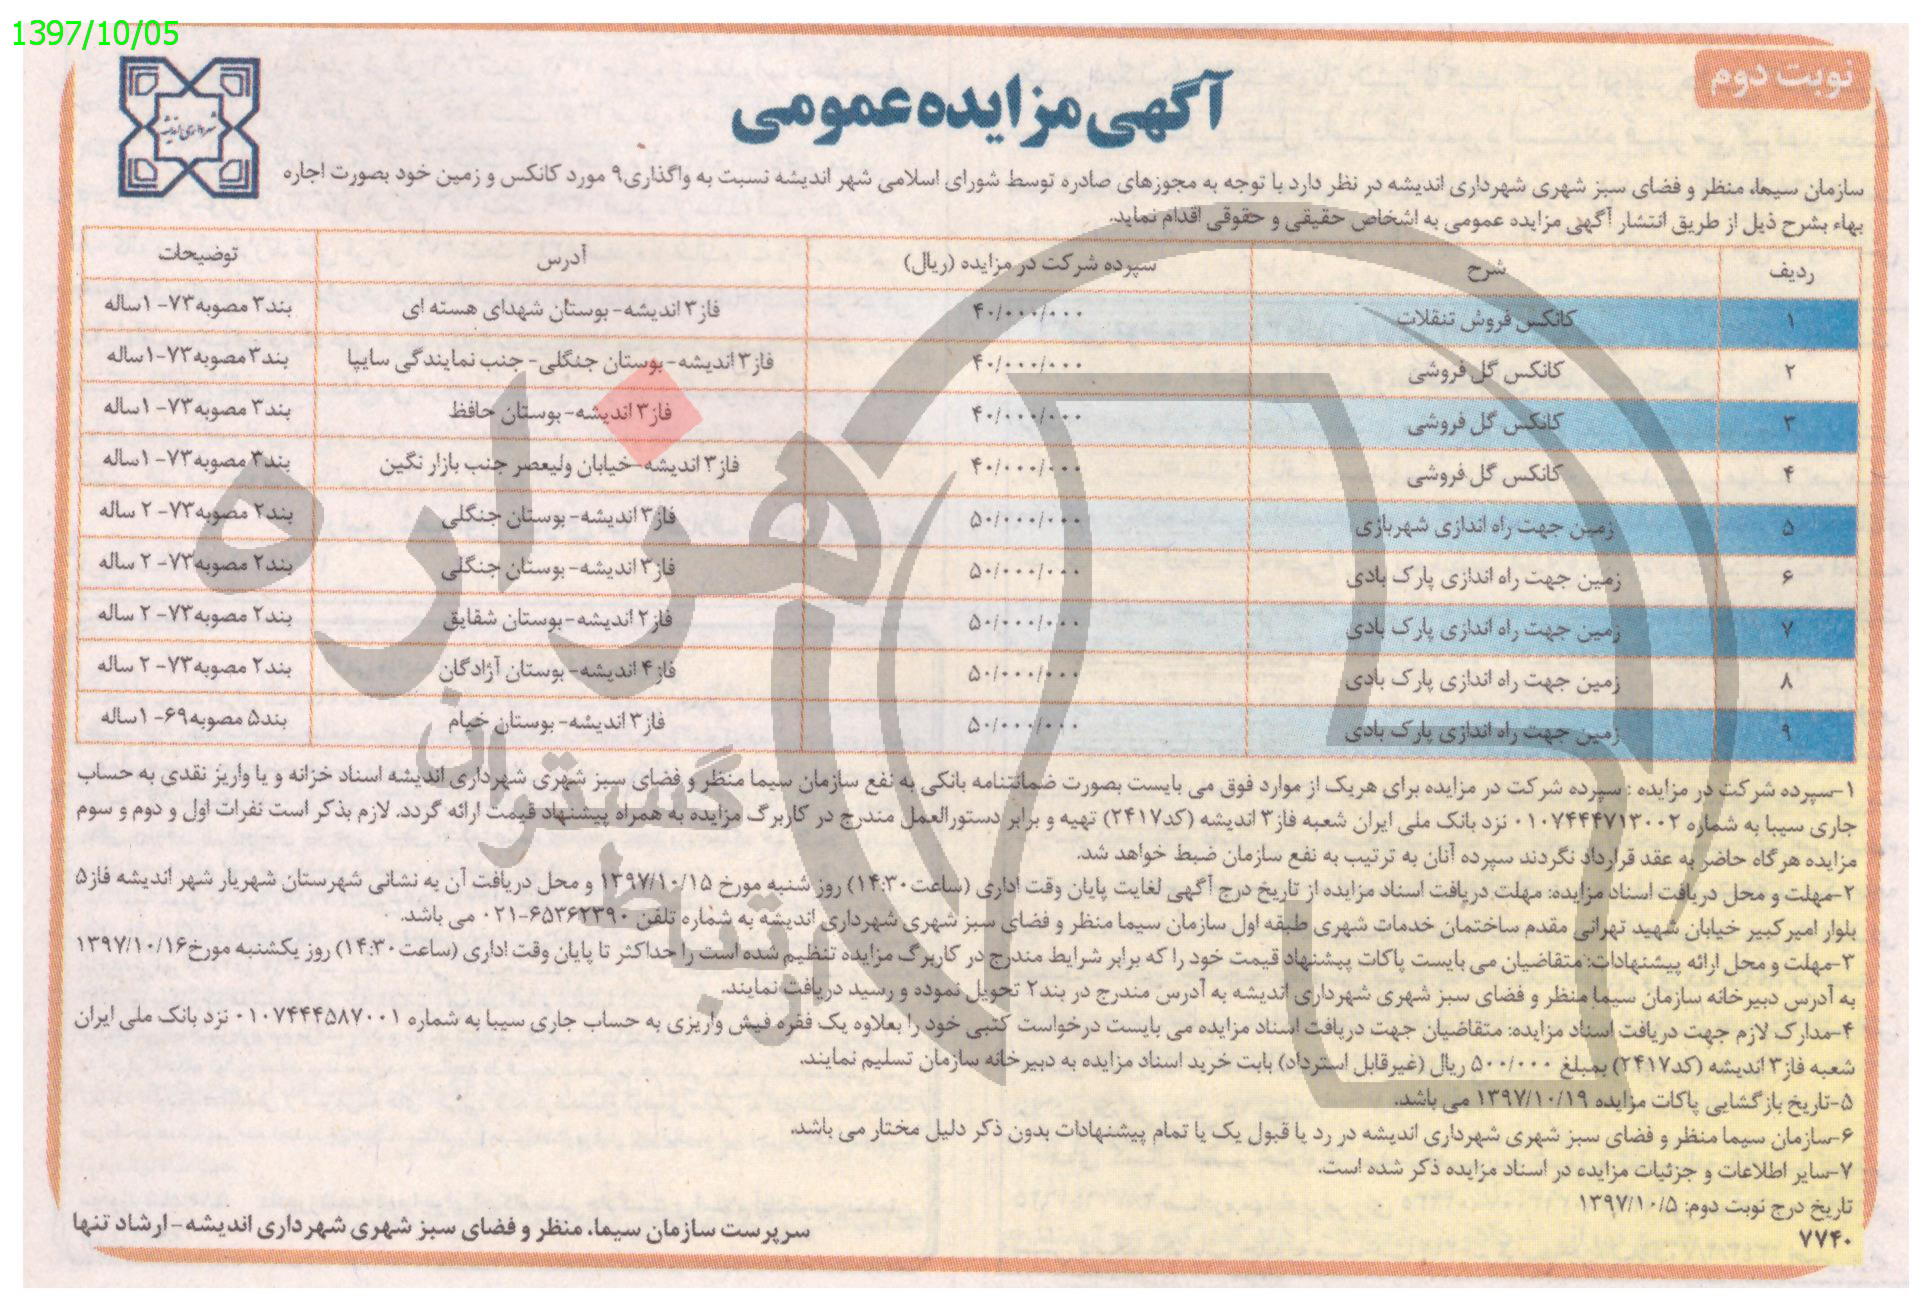 1397/10/05
نوبت دوم
آگهی مزایده عمومی
شهرداری اندیشه
سازمان سیما، منظر و فضای سبز شهری شهرداری اندیشه در نظر دارد با توجه به مجوزهای صادره توسط شورای اسلامی شهر اندیشه نسبت به واگذاری۹ مورد کانکس و زمین خود بصورت اجاره
بهاء بشرح ذیل از طریق انتشار آگهی مزایده عمومی به اشخاص حقیقی و حقوقی اقدام نماید.
ردیف شرح سپرده شرکت در مزایده (ریال) آدرس توضیحات
۱ کانکس فروش تنقلات ۴۰/۰۰۰/۰۰۰ فاز۳ اندیشه- بوستان شهدای هسته ای بند۳ مصوبه۷۳- ۱ساله
۲ کانکس گل فروشی ۴۰/۰۰۰/۰۰۰ فاز۳ اندیشه- بوستان جنگلی- جنب نمایندگی سایپا بند۳ مصوبه۷۳-۱ساله
۳ کانکس گل فروشی ۴۰/۰۰۰/۰۰۰ فاز۳ اندیشه- بوستان حافظ بند۳ مصوبه۷۳- ۱ساله
۴ کانکس گل فروشی ۴۰/۰۰۰/۰۰۰ فاز۳ اندیشه-خیابان ولیعصر جنب بازار نگین بند۳ مصوبه۷۳- ۱ساله
۵ زمین جهت راه اندازی شهربازی ۵۰/۰۰۰/۰۰۰ فاز۳ اندیشه- بوستان جنگلی بند۲ مصوبه۷۳- ۲ ساله
۶ زمین جهت راه اندازی پارک بادی ۵۰/۰۰۰/۰۰۰ فاز۳ اندیشه- بوستان جنگلی بند۲ مصوبه۷۳- ۲ ساله
۷ زمین جهت راه اندازی پارک بادی ۵۰/۰۰۰/۰۰۰ فاز۲ اندیشه-بوستان شقایق بند۲ مصوبه۷۳- ۲ ساله
۸ زمین جهت راه اندازی پارک بادی ۵۰/۰۰۰/۰۰۰ فاز۴ اندیشه- بوستان آزادگان بند۲ مصوبه۷۳- ۲ ساله
۹ زمین جهت راه اندازی پارک بادی ۵۰/۰۰۰/۰۰۰ فاز۳ اندیشه- بوستان خیام بند۵ مصوبه۶۹- ۱ساله
۱-سپرده شرکت در مزایده : سپرده شرکت در مزایده برای هریک از موارد فوق می بایست بصورت ضمانتنامه بانکی به نفع سازمان سیما منظر و فضای سبز شهری شهرداری اندیشه اسناد خزانه و یا واریز نقدی به حساب
جاری سیبا به شماره ۰۱۰۷۴۴۴۷۱۳۰۰۲ نزد بانک ملی ایران شعبه فاز۳ اندیشه (کد۲۴۱۷) تهیه و برابر دستورالعمل مندرج در کاربرگ مزایده به همراه پیشنهاد قیمت ارائه گردد. لازم بذکر است نفرات اول و دوم و سوم
مزایده هرگاه حاضر به عقد قرارداد نگردند سپرده آنان به ترتیب به نفع سازمان ضبط خواهد شد.
۲-مهلت و محل دریافت اسناد مزایده: مهلت دریافت اسناد مزایده از تاریخ درج آگهی لغایت پایان وقت اداری (ساعت۱۴:۳۰) روز شنبه مورخ ۱۳۹۷/۱۰/۱۵ و محل دریافت آن به نشانی شهرستان شهریار شهر اندیشه فاز۵
بلوار امیرکبیر خیابان شهید تهرانی مقدم ساختمان خدمات شهری طبقه اول سازمان سیما منظر و فضای سبز شهری شهرداری اندیشه به شماره تلفن ۶۵۳۶۲۳۹۰-۰۲۱ می باشد.
۳-مهلت و محل ارائه پیشنهادات: متقاضیان می بایست پاکات پیشنهاد قیمت خود را که برابر شرایط مندرج در کاربرگ مزایده تنظیم شده است را حداکثر تا پایان وقت اداری (ساعت۱۴:۳۰) روز یکشنبه مورخ۱۳۹۷/۱۰/۱۶
به آدرس دبیرخانه سازمان سیما منظر و فضای سبز شهری شهرداری اندیشه به آدرس مندرج در بند۲ تحویل نموده و رسید دریافت نمایند.
۴-مدارک لازم جهت دریافت اسناد مزایده: متقاضیان جهت دریافت اسناد مزایده می بایست درخواست کتبی خود را بعلاوه یک فقره فیش واریزی به حساب جاری سیبا به شماره ۰۱۰۷۴۴۴۵۸۷۰۰۱ نزد بانک ملی ایران
شعبه فاز۳ اندیشه (کد۲۴۱۷) بمبلغ ۵۰۰/۰۰۰ ریال (غیرقابل استرداد) بابت خرید اسناد مزایده به دبیرخانه سازمان تسلیم نمایند.
۵-تاریخ بازگشایی پاکات مزایده ۱۳۹۷/۱۰/۱۹ می باشد.
۶-سازمان سیما منظر و فضای سبز شهری شهرداری اندیشه در رد یا قبول یک یا تمام پیشنهادات بدون ذکر دلیل مختار می باشد.
۷-سایر اطلاعات و جزئیات مزایده در اسناد مزایده ذکر شده است.
تاریخ درج نوبت دوم: ۱۳۹۷/۱۰/۵
۷۷۴۰
سرپرست سازمان سیما، منظر و فضای سبز شهری شهرداری اندیشه-ارشاد تنها
هزاره
گستران
ارتباط